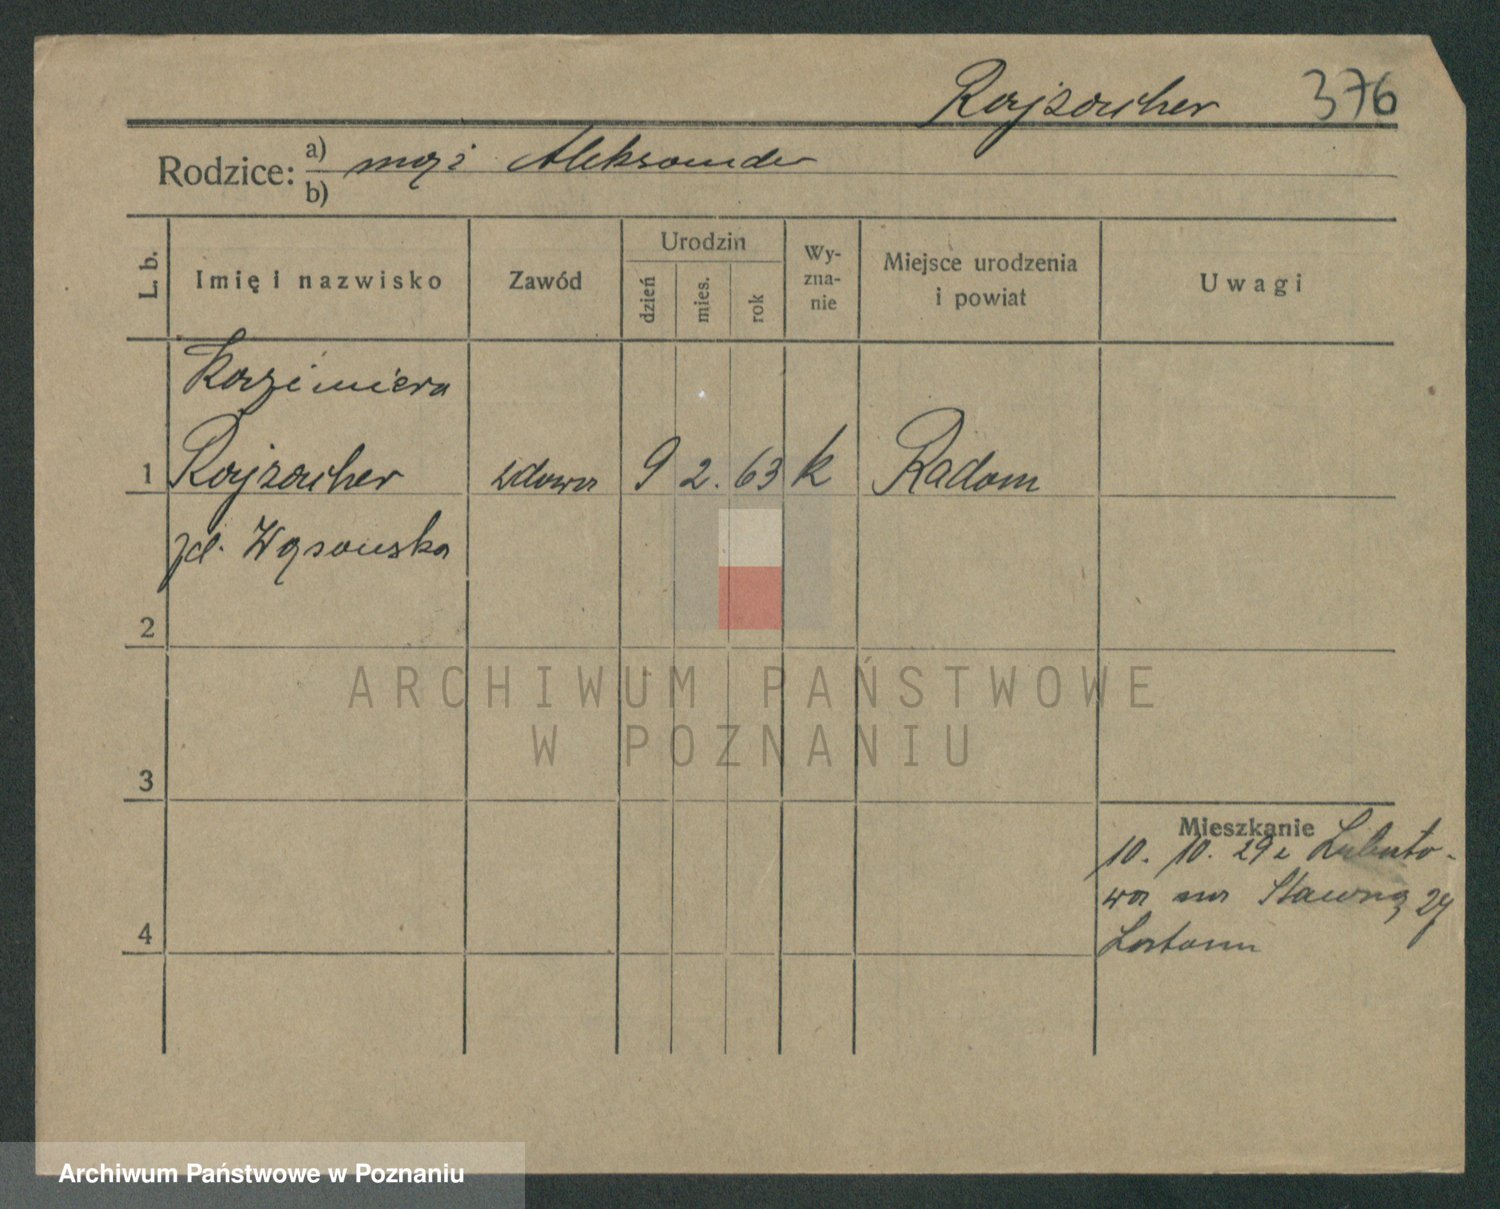 Rajzacher 376
Rodzice: a) mąż Aleksander
b)
L. b. Imię i nazwisko Zawód Urodzin dzień mies. rok Wy-zna-nie Miejsce urodzenia i powiat Uwagi
Kazimiera
1 Rajzacher wdowa 9 2. 63 k Radom
zd. Wąsowska
2
3
Mieszkanie
10. 10. 29 z Lubarto-
wa na Stawną 27
4
ARCHIWUM PAŃSTWOWE
W POZNANIU
Archiwum Państwowe w Poznaniu